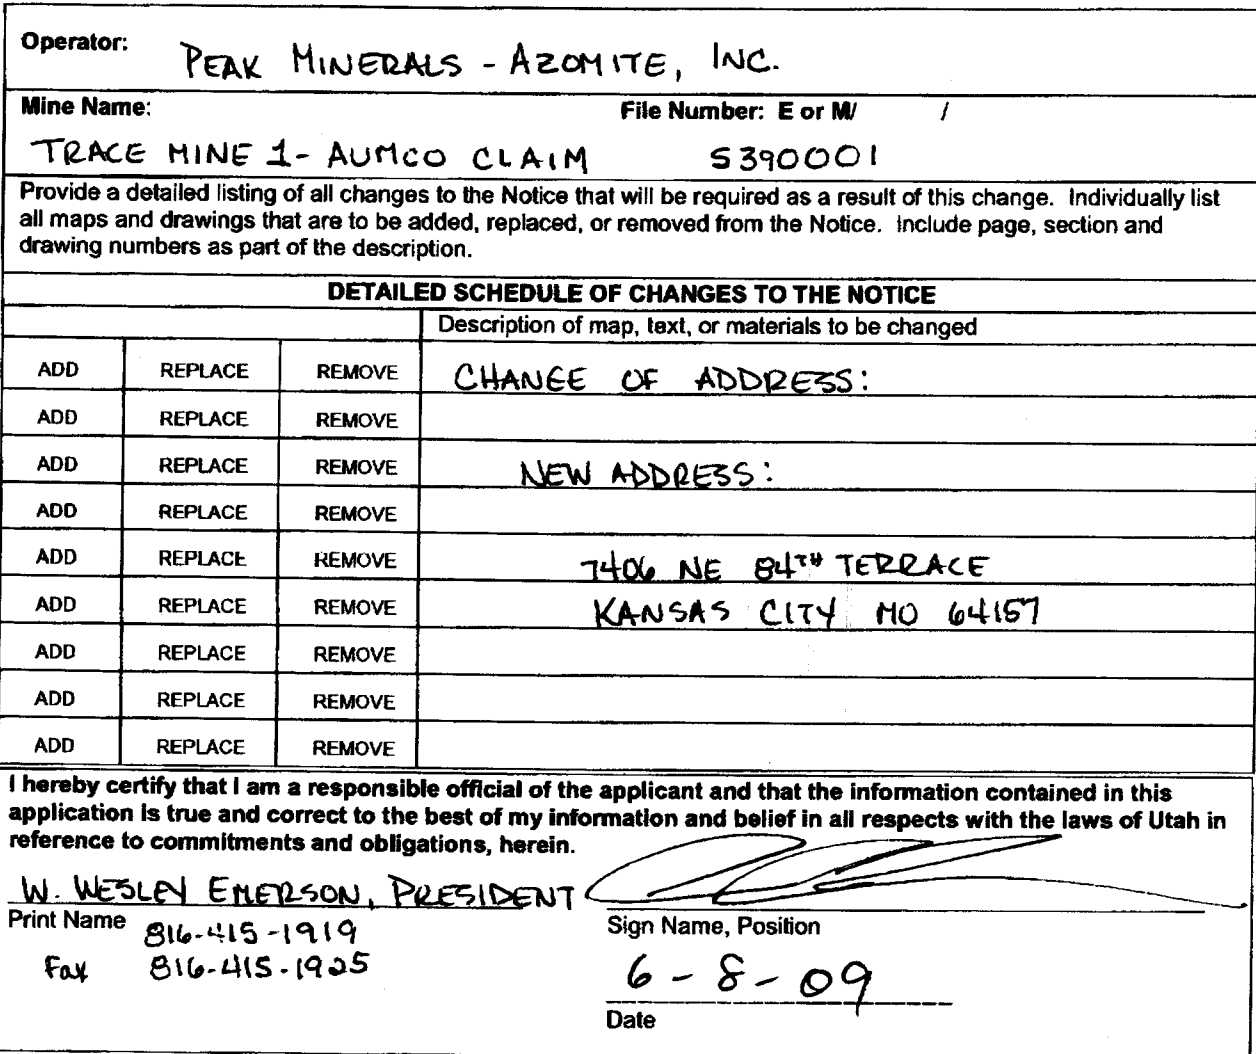 Operator: PEAK MINERALS - AZOMITE, INC.
Mine Name: File Number: E or M/ /
TRACE MINE 1 - AUMCO CLAIM S390001
Provide a detailed listing of all changes to the Notice that will be required as a result of this change. Individually list
all maps and drawings that are to be added, replaced, or removed from the Notice. Include page, section and
drawing numbers as part of the description.
DETAILED SCHEDULE OF CHANGES TO THE NOTICE
Description of map, text, or materials to be changed
ADD REPLACE REMOVE CHANGE OF ADDRESS:
ADD REPLACE REMOVE
ADD REPLACE REMOVE NEW ADDRESS:
ADD REPLACE REMOVE
ADD REPLACE REMOVE 7406 NE 84TH TERRACE
ADD REPLACE REMOVE KANSAS CITY MO 64157
ADD REPLACE REMOVE
ADD REPLACE REMOVE
ADD REPLACE REMOVE
I hereby certify that I am a responsible official of the applicant and that the information contained in this
application is true and correct to the best of my information and belief in all respects with the laws of Utah in
reference to commitments and obligations, herein.
W. WESLEY EMERSON, PRESIDENT
Print Name 816-415-1919
Fax 816-415-1925
Sign Name, Position
6-8-09
Date